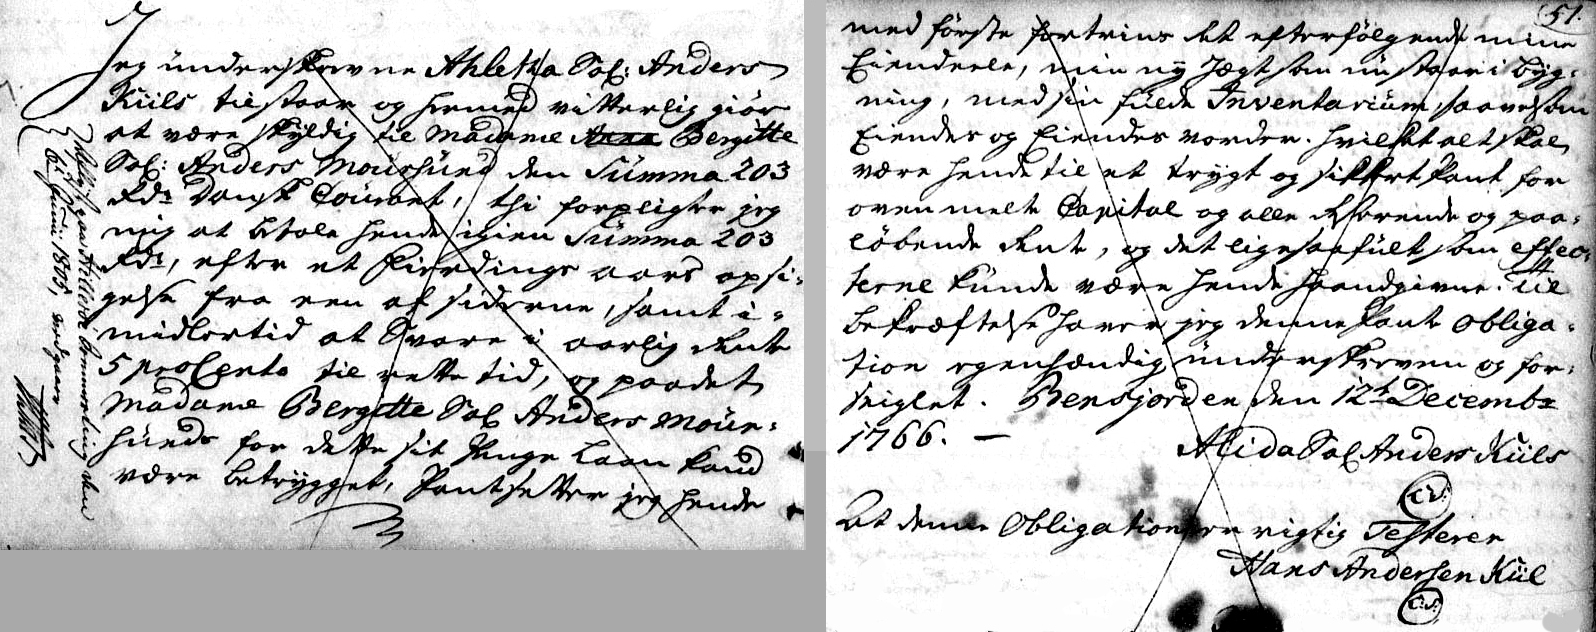 Jeg underskrevne Ahletha Sal: Anders
Kiils tilstaar og hermed vitterlig giør
at være skyldig til Madame Anna Bergitte
Sal: Anders Moursund den Summa 203
Rdr Dansk Courant, thi forpligter jeg
mig at betale hende igien Summa 203
Rdr, efter et Fierdings aars opsi-
gelse fra een af siderne, samt i-
midlertid at Svare i aarlig Rente
5 proCento til rette tid, og paadet
Madame Bergitte Sal Anders Mour-
sunds for dette sit Penge Laan kand
være betrygget, Pantsetter jeg hende
den
Juni 1805,
51.
med første fortrins Ret efterfølgende mine
Eiendeele, min ny Jægt som nu staar i byg-
ning, med sin fulde Inventarium, saavelsom
Eiendes og Eiendes vorder. hvilket alt skal
være hende til et trygt og sikkert Pant for
ovenmelte Capital og alle resterende og paa-
løbende Rente, og det ligesaafult som effec-
terne kunde være hende haandgivne. Til
bekræftelse haver jeg denne Pante Obliga-
tion egenhændig underskreven og for-
seiglet. Bensjorden den 12te Decembr
1766. —
Alida Sal Anders Kiils
At denne Obligation er rigtig Testerer
Hans Andersen Kiil